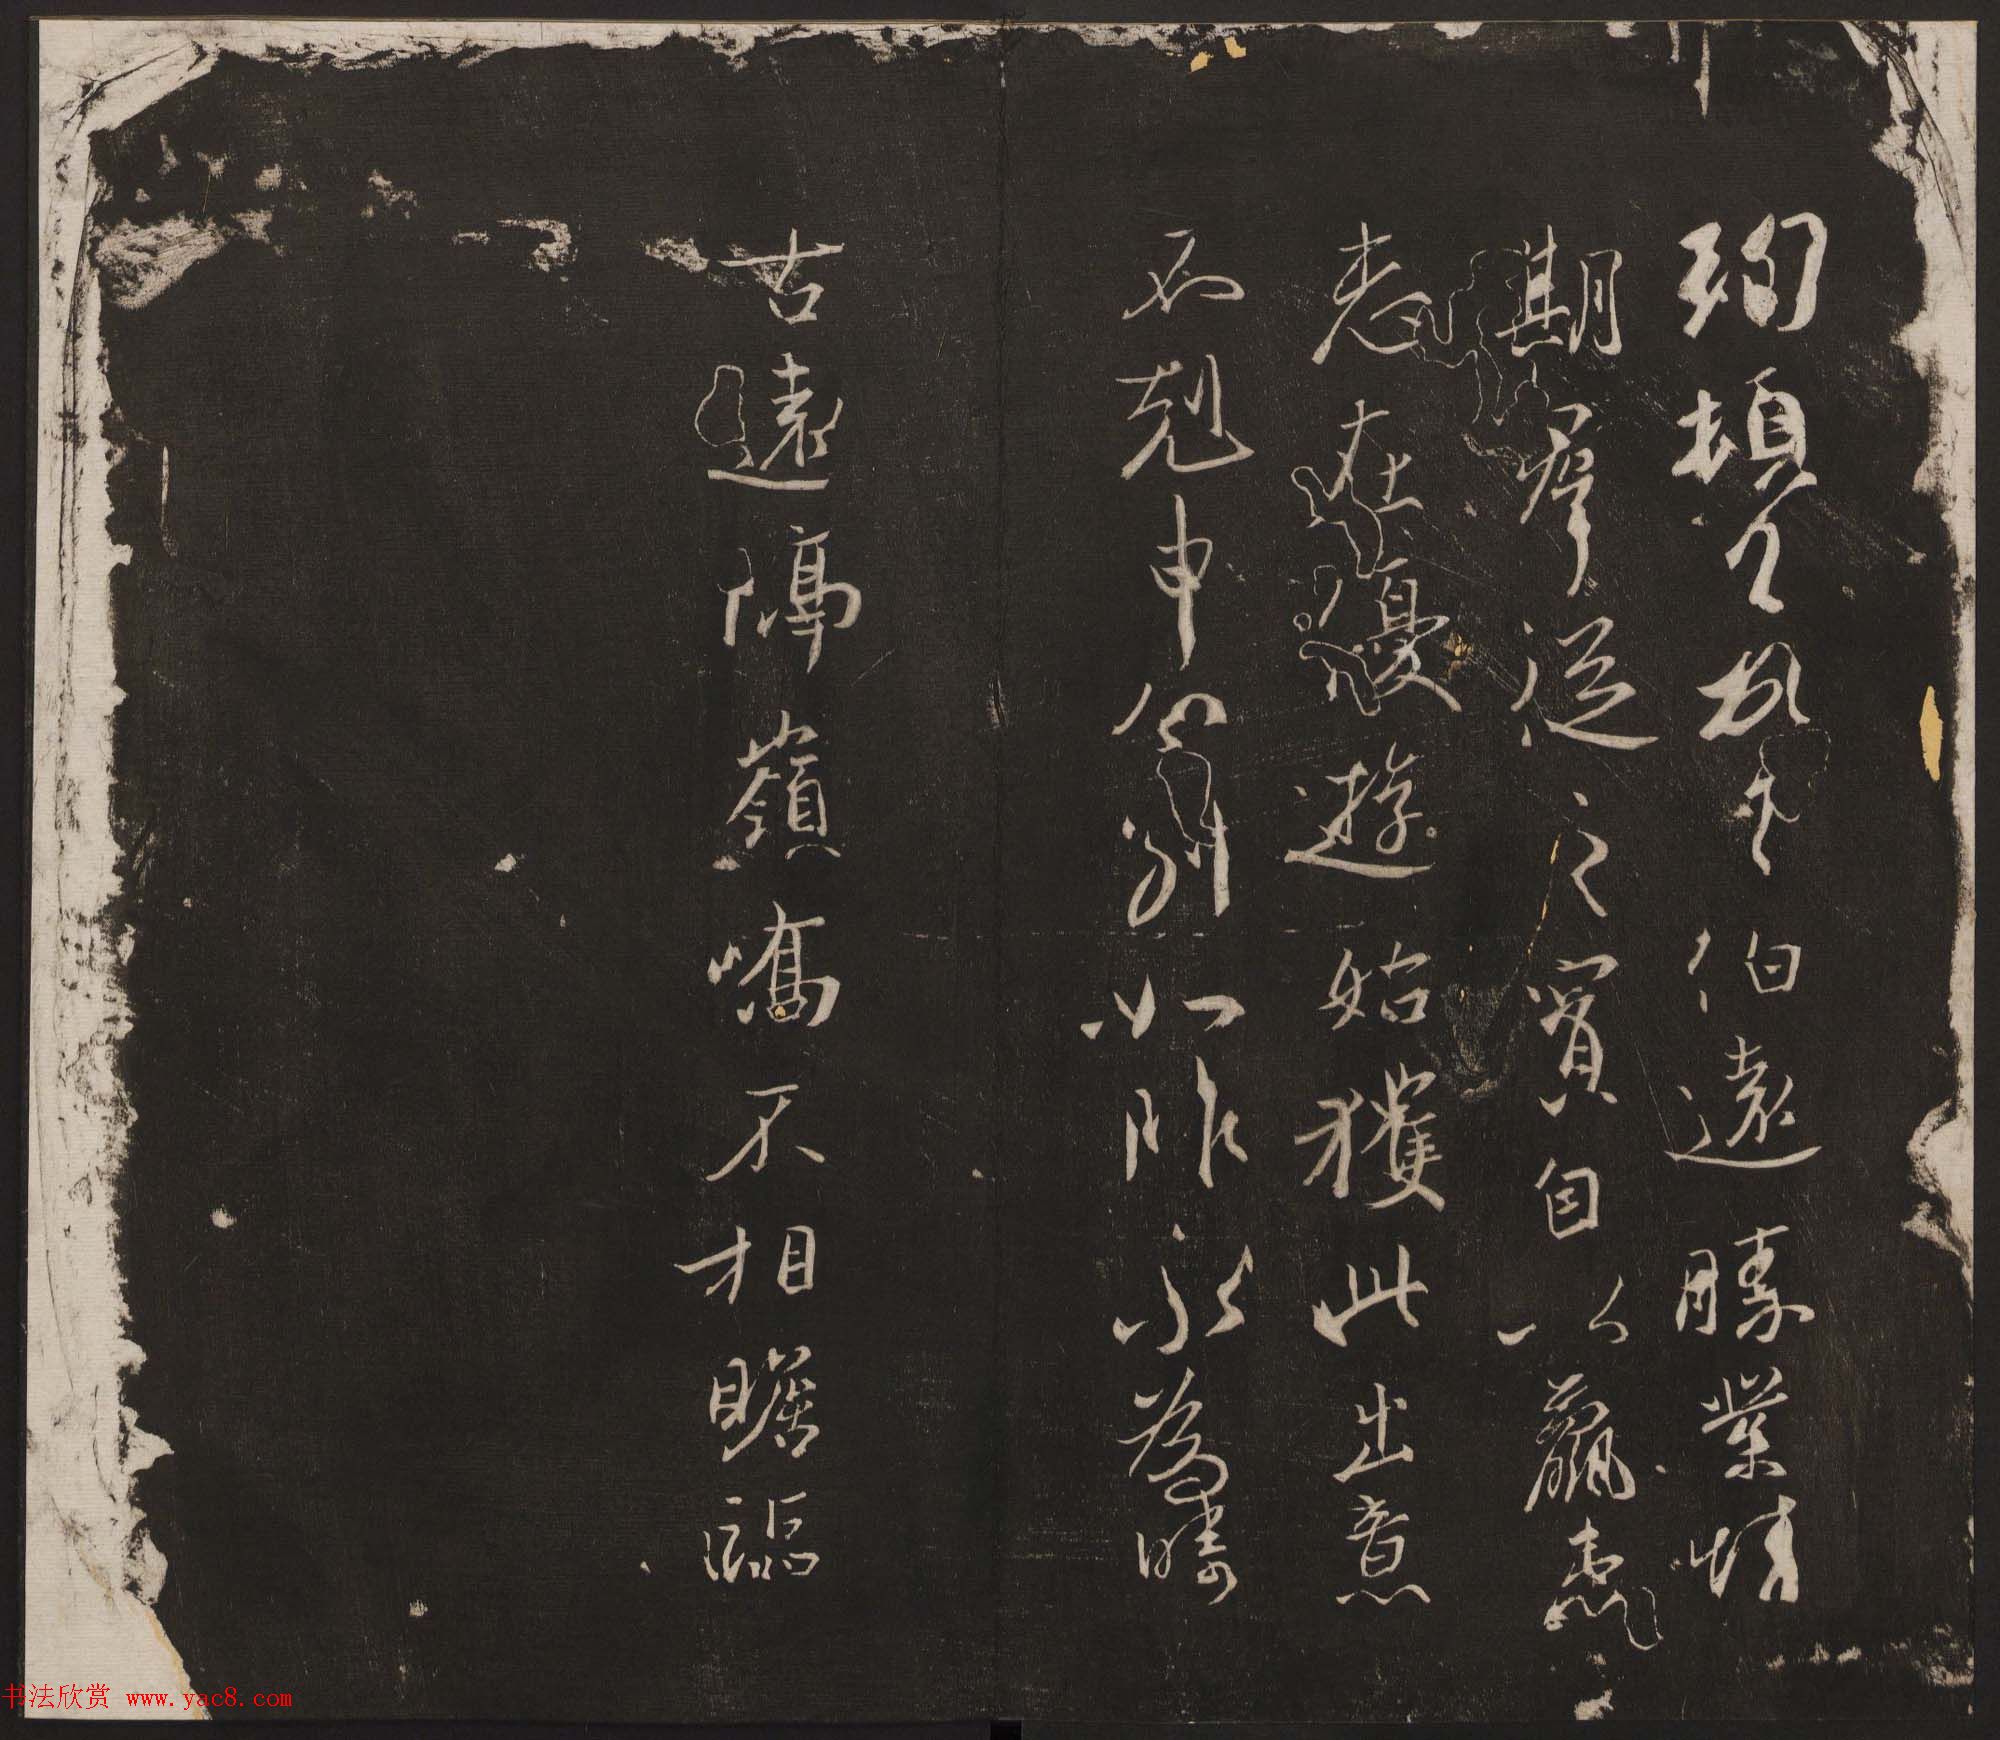 珣頓首頓首伯遠勝業情
期群從之寶自以羸患
志在優遊始獲此出意
不剋申分別如昨永為疇
古遠隔嶺嶠不相瞻臨
书法欣赏 www.yac8.com